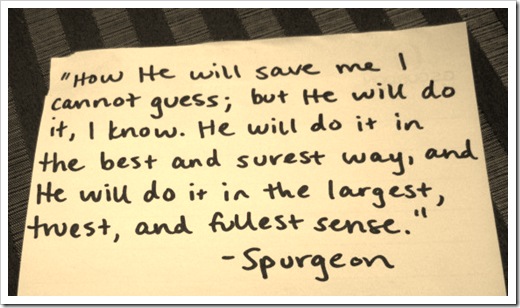 "How He will save me I
cannot guess; but He will do
it, I know. He will do it in
the best and surest way, and
He will do it in the largest,
truest, and fullest sense."
-Spurgeon